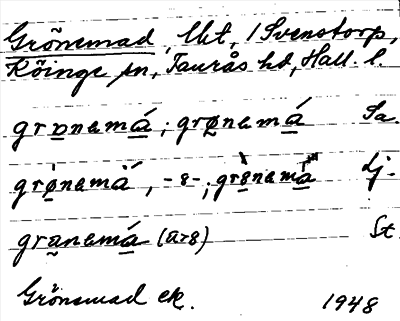 Grönemad, lht, i Svenstorp,
Köinge sn, Faurås hd, Hall. l.
grɷnamá ; grønamá Sa.
grønamà, -8-; gr8nama Lj.
granamá (ür8) St.
Grönemad ek. 1948